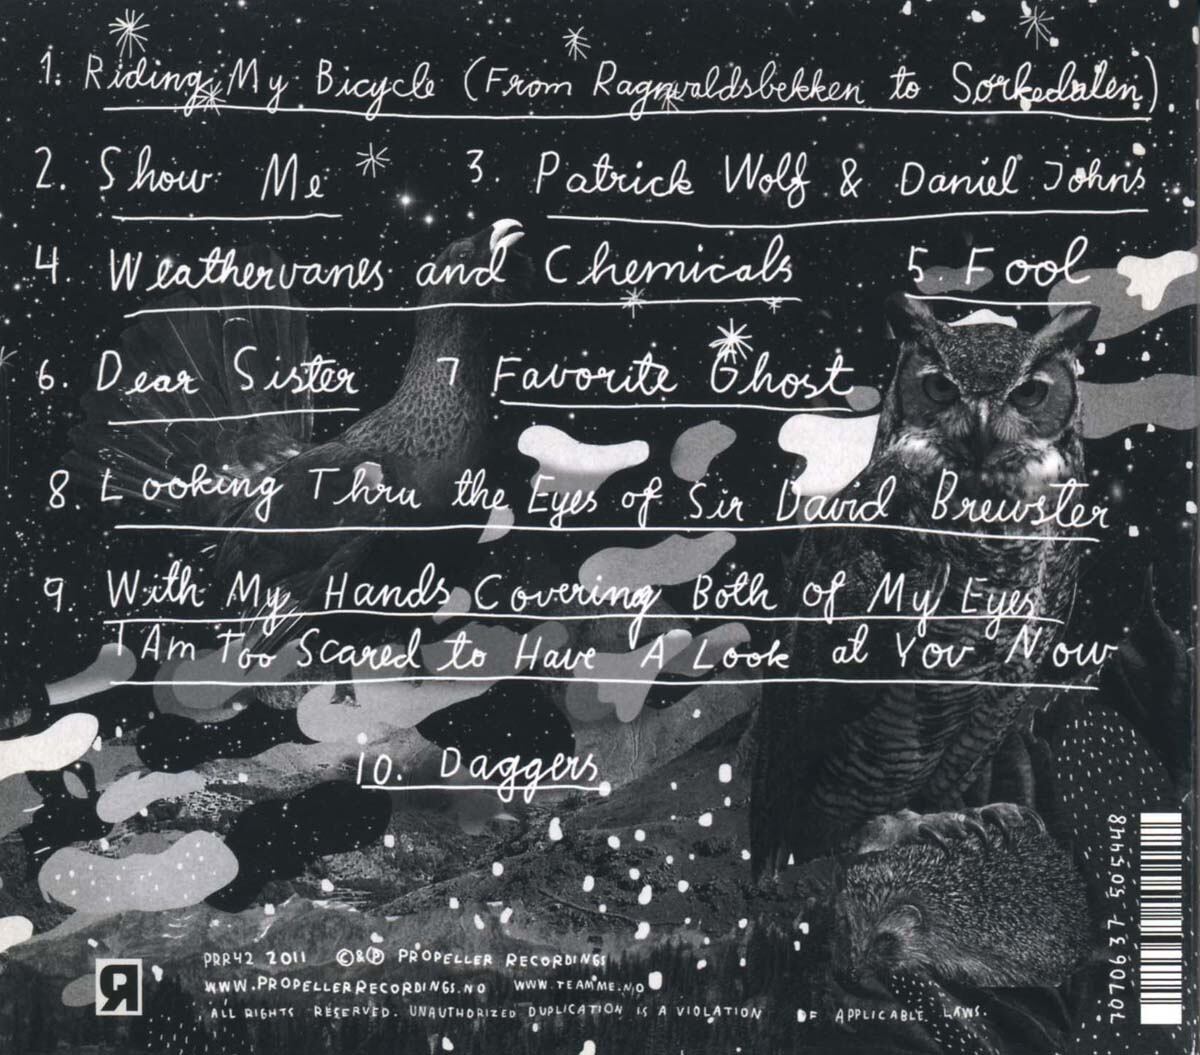 1. Riding My Bicycle (From Ragnvaldsbekken to Sorkedalen)
2. Show Me 3. Patrick Wolf & Daniel Johns
4. Weathervanes and Chemicals 5. Fool
6. Dear Sister 7 Favorite Ghost
8. Looking Thru the Eyes of Sir David Brewster
9. With My Hands Covering Both of My Eyes
I Am Too Scared to Have A Look at You Now
10. Daggers
PRR42 2011 ©&℗ PROPELLER RECORDINGS
WWW.PROPELLERRECORDINGS.NO WWW.TEAMME.NO
ALL RIGHTS RESERVED. UNAUTHORIZED DUPLICATION IS A VIOLATION OF APPLICABLE LAWS.
7070637 505448